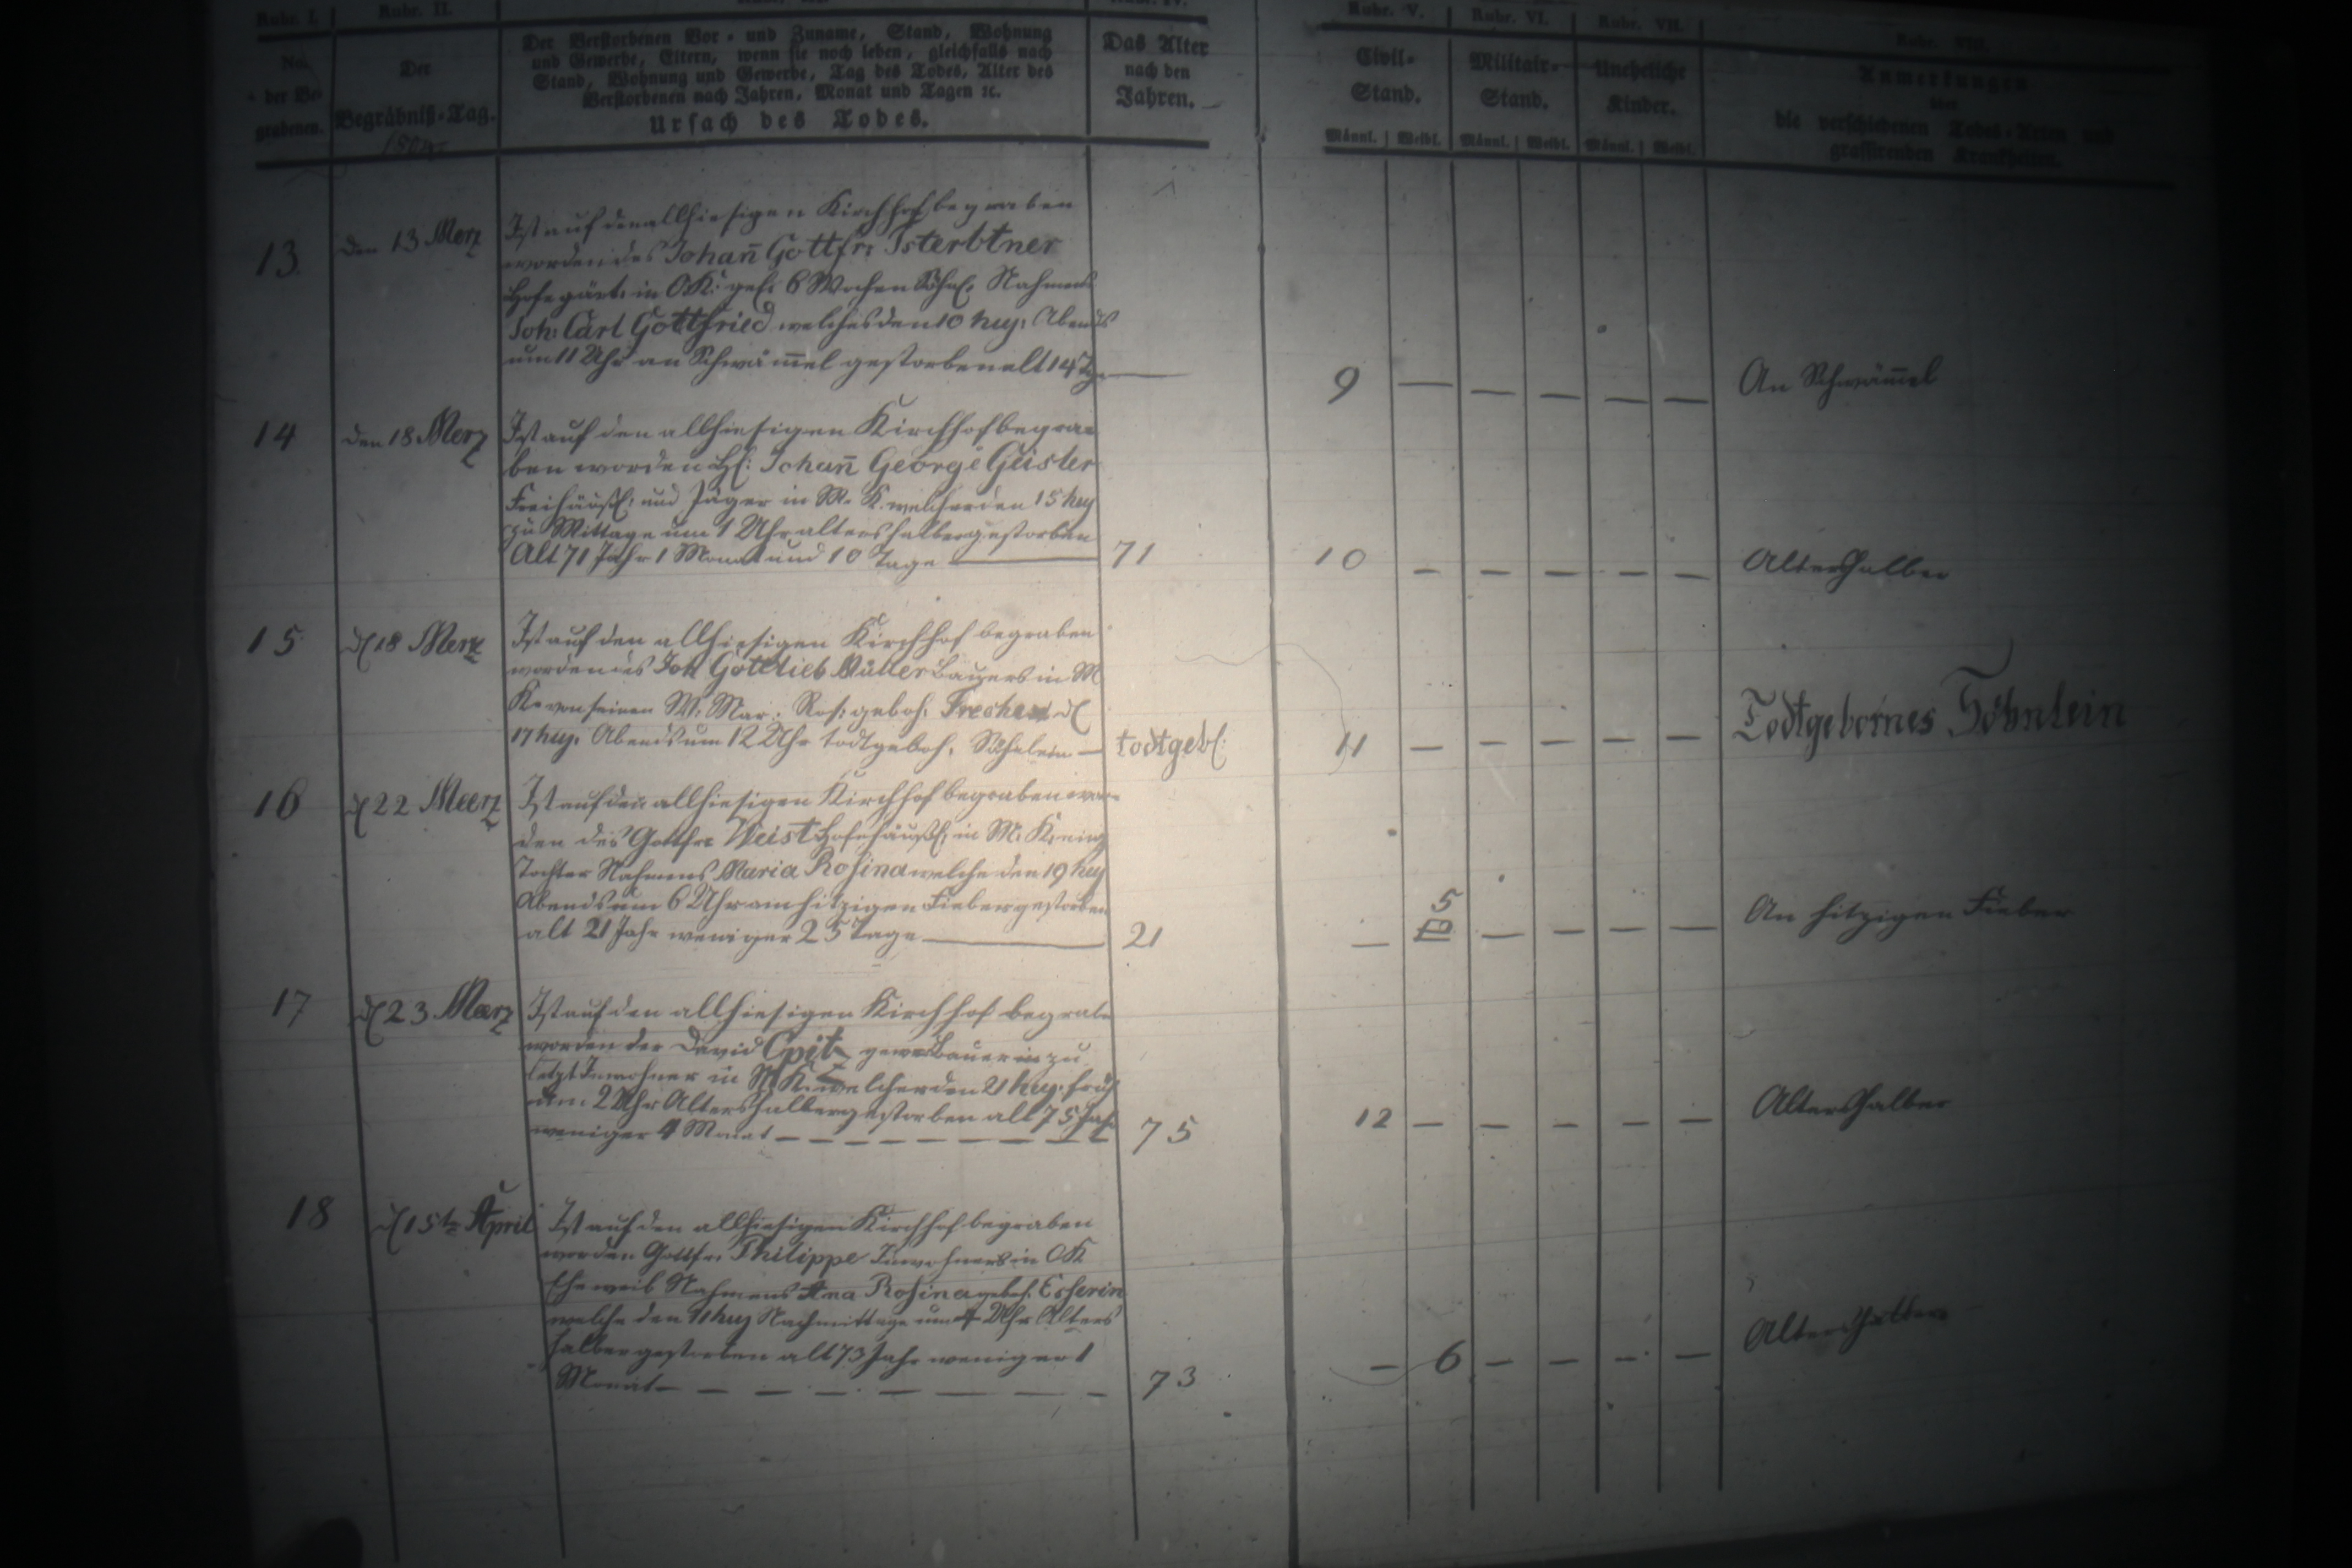 Rubr. I.
Rubr. II.
No.
der Be-
grabenen.
Der
Begräbniß-Tag.
Der Verstorbenen Vor- und Zuname, Stand, Wohnung
und Gewerbe, Eltern, wenn sie noch leben, gleichfalls nach
Stand, Wohnung und Gewerbe, Tag des Todes, Alter des
Verstorbenen nach Jahren, Monat und Tagen ꝛc.
Ursach des Todes.
Das Alter
nach den
Jahren.
Rubr. V.
Rubr. VI.
Rubr. VII.
Rubr. VIII.
Civil-
Stand.
Militair-
Stand.
Uneheliche
Kinder.
Anmerkungen
über
die verschiedenen Todes-Arten und
grassirenden Krankheiten.
Männl. Weibl. Männl. Weibl. Männl. Weibl.
13
den 13 Merz
Ist auf den allhiesigen Kirchhof begraben
worden des Johan̄ Gottfr:
in O.K. 6 Wochen Nahmens
Joh: Carl Gottfried welches den 10 huj: Abends
um 11 Uhr an Schwäm̄el gestorben alt
9 — — — — —
An Schwäm̄el
14
den 18 Merz
Ist auf den allhiesigen Kirchhof begra=
ben worden H: Johan̄ George Geisler
Freihäusl: und Jäger in M. K. welcher den 15 huj
zu Mittage um 1 Uhr altershalber gestorben
Alt 71 Jahr 1 Monat und 10 Tage —
71
10 — — — — —
Altershalber
15
d 18 Merz
Ist auf den allhiesigen Kirchhof begraben
worden des Joh Gottlieb Müller Bauers in M
K. von seinem W: Mar: Ros: geboh:
17 huj. Abends um 12 Uhr todtgeboh. Söhnlein —
todtgeb:
11 — — — — —
Todtgebornes Söhnlein
16
d 22 Meerz
Ist auf den allhiesigen Kirchhof begraben wor=
den des Gottfr: Weist Hofehäusl: in M. K.
Tochter Nahmens Maria Rosina welche den 19 huj
Abends um 6 Uhr am hitzigen Fieber gestorben
alt 21 Jahr weniger 25 Tage —
21
— 5 — — — —
An hitzigen Fieber
17
d 23 Maerz
Ist auf den allhiesigen Kirchhof begrab
worden der David gew. Bauer zu
letzt Inwohner in M. K. welcher den 21 huj. früh
um 2 Uhr Altershalber gestorben alt 75 Jah
weniger 4 Monat —
75
12 — — — — —
Altershalber
18
d 15te April
Ist auf den allhiesigen Kirchhof begraben
worden Gottfr. Philippe Inwohners in O K
Eheweib Nahmens Ana Rosina geboh.
welche den 11 huj Nachmittage um 4 Uhr Alters
halber gestorben alt 73 Jahr weniger 1
Monat —
73
— 6 — — — —
Altershalber